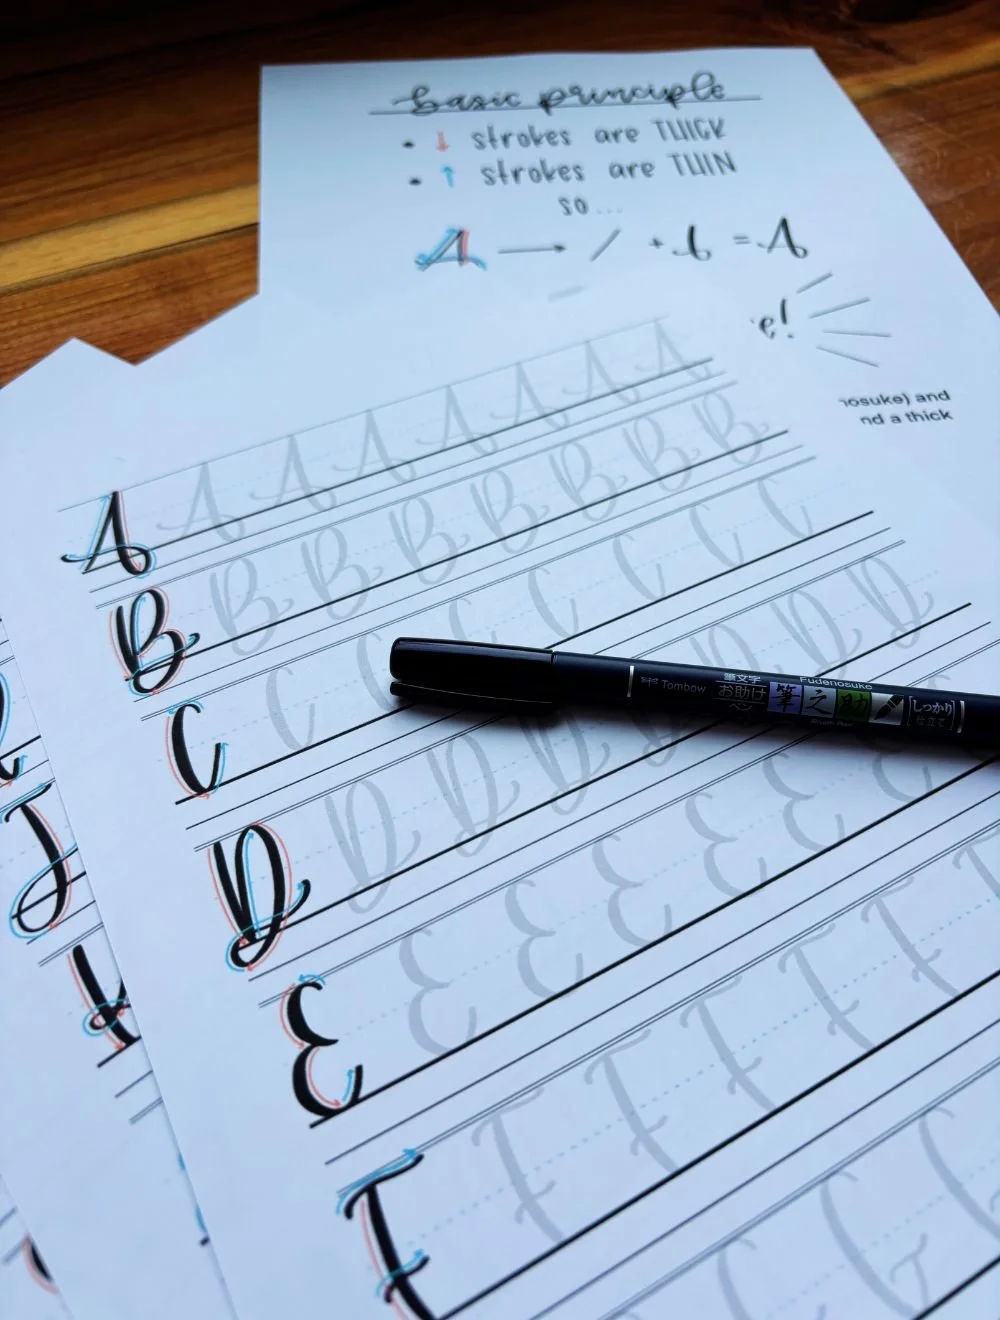 basic principle
• ↓ strokes are THICK
• ↑ strokes are THIN
so...
A → / + = A
e!
nosuke) and
nd a thick
A A A A A A A
B B B B B B B
C C C C C C C
D D D D D D D
E E E E E E
F F F F F F
G G
J
K
Tombow
筆文字
お助け
ペン
Fudenosuke
筆之助
しっかり
仕立て
Brush Pen